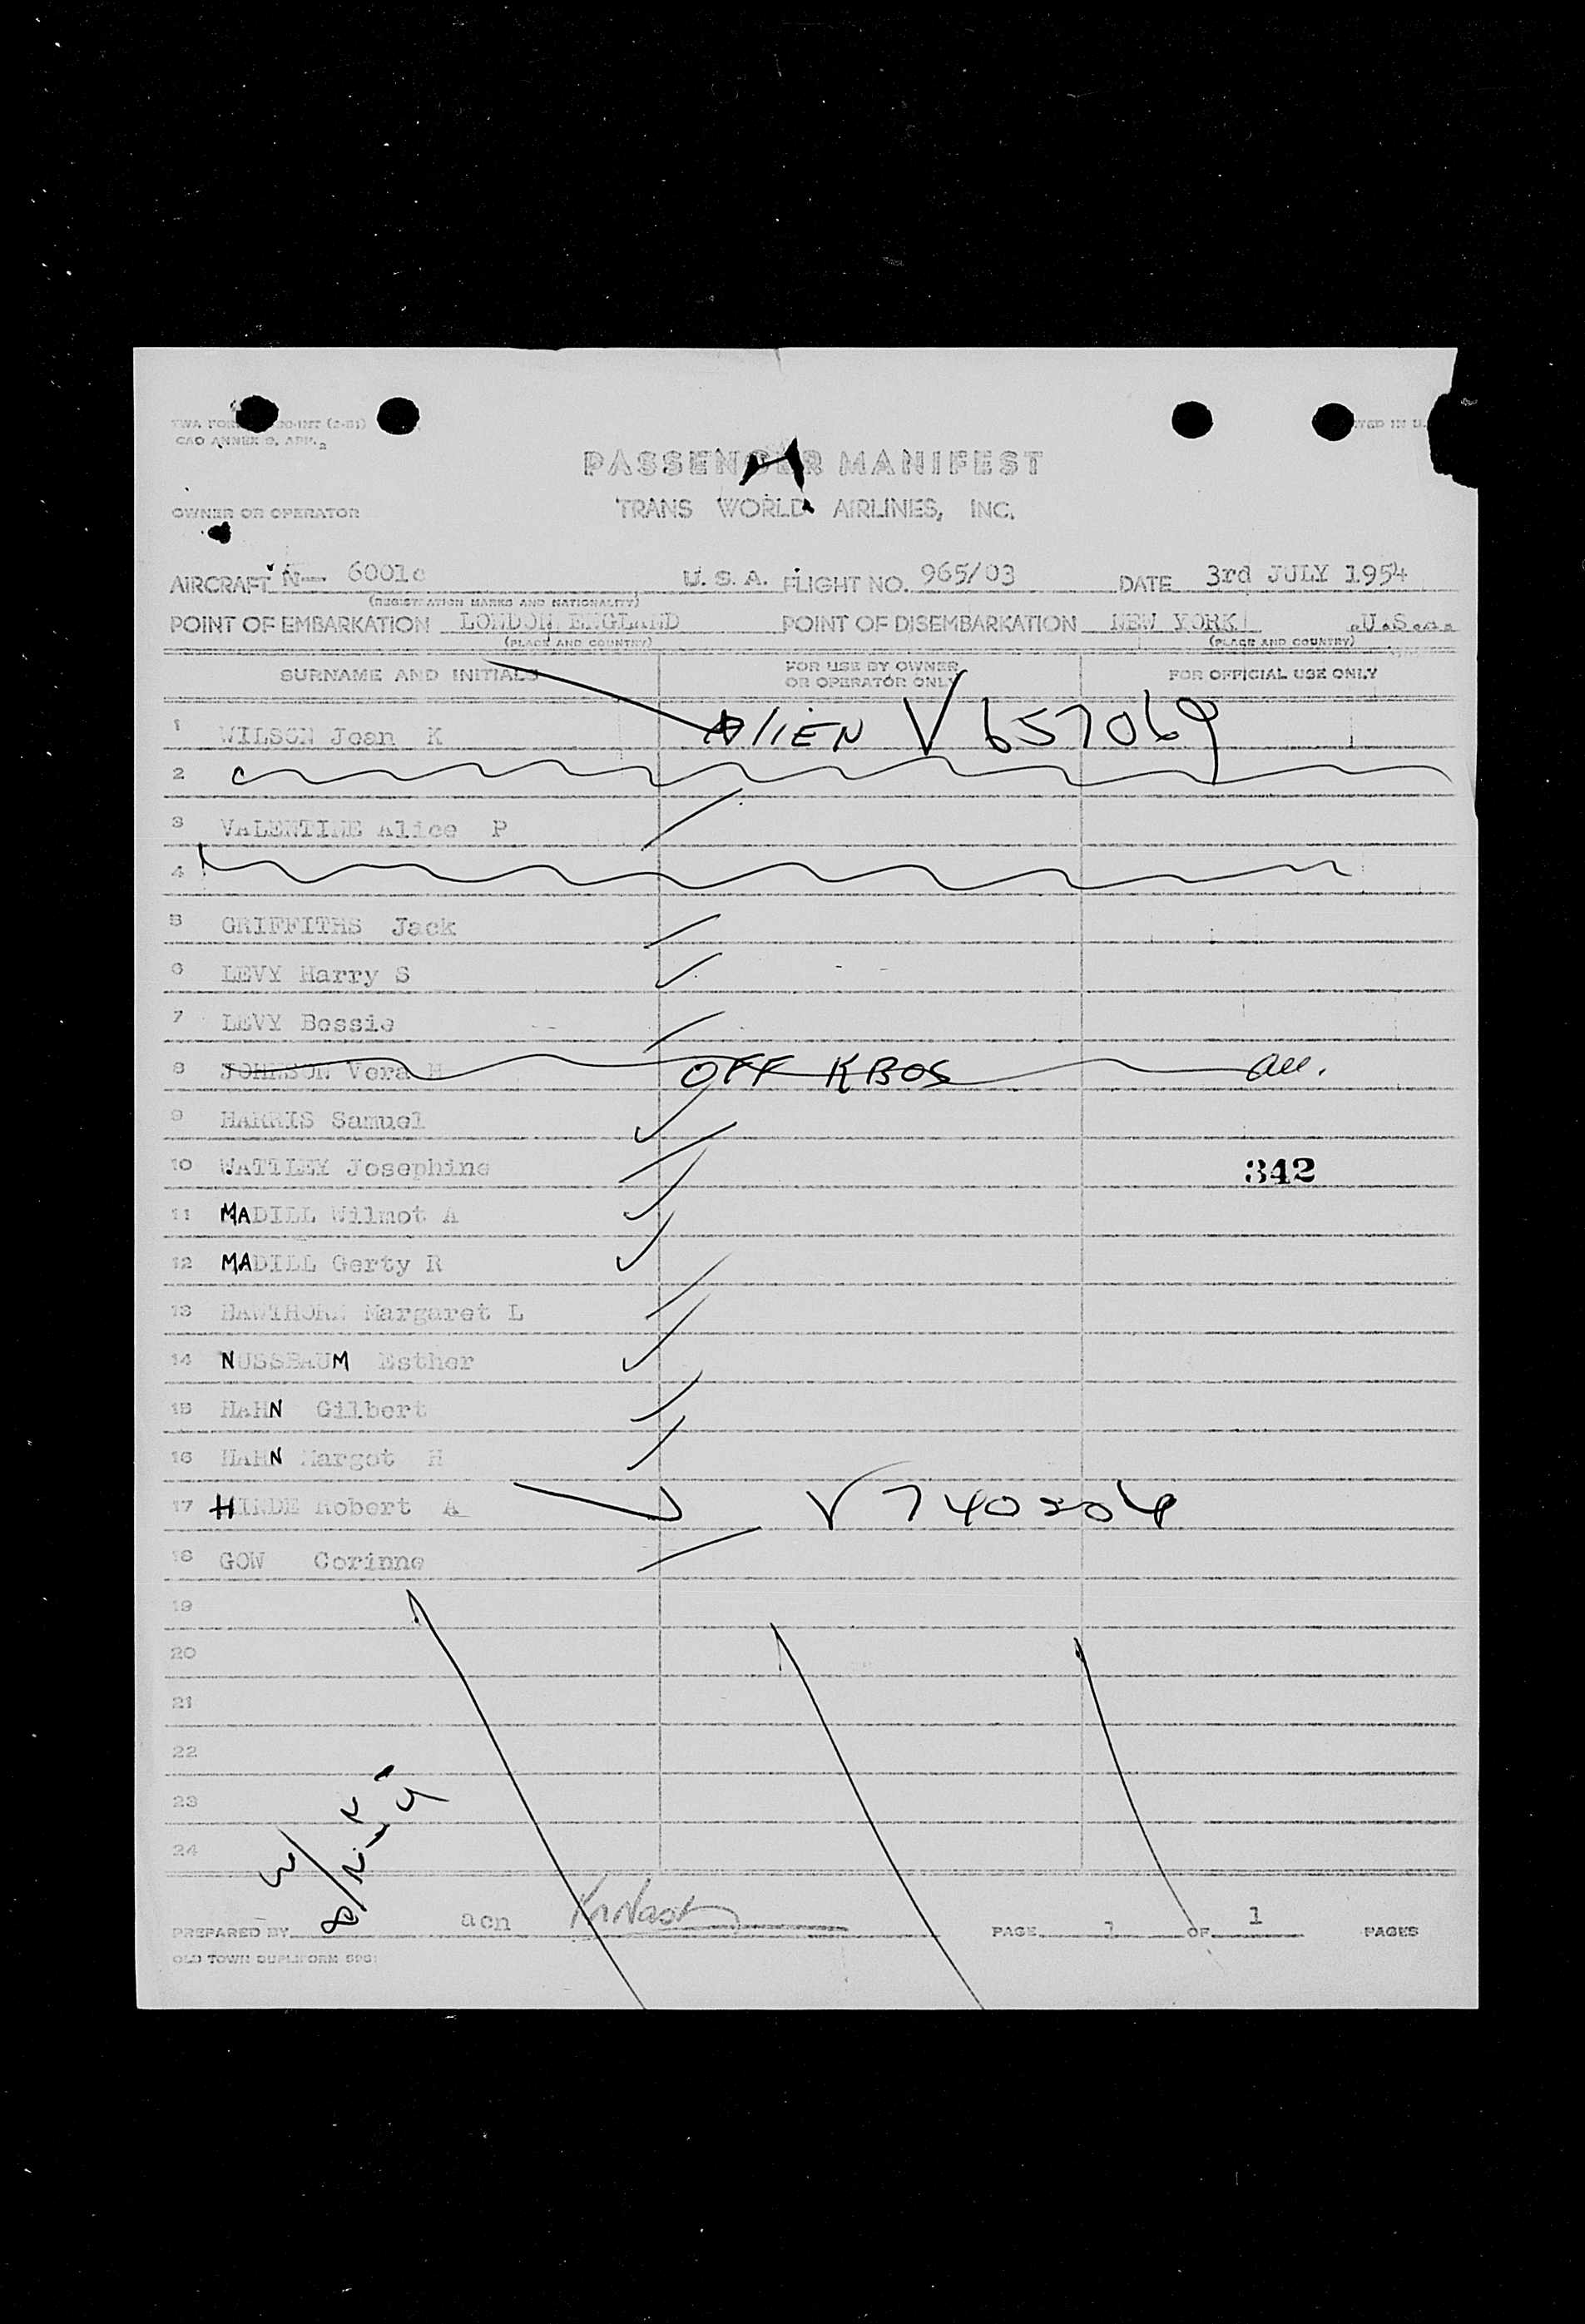 CAO ANNEX 9, APP. 2
PASSENGER MANIFEST
TRANS WORLD AIRLINES, INC.
OWNER OR OPERATOR
AIRCRAFT N— 6001c U. S. A. FLIGHT NO. 965/03 DATE 3rd JULY 1954
(REGISTRATION MARKS AND NATIONALITY)
POINT OF EMBARKATION LONDON ENGLAND POINT OF DISEMBARKATION NEW YORK U.S.A.
(PLACE AND COUNTRY) (PLACE AND COUNTRY)
SURNAME AND INITIALS FOR USE BY OWNER OR OPERATOR ONLY FOR OFFICIAL USE ONLY
1 WILSON Joan K AliEN V657069
2
3 VALENTINE Alice P
4
5 GRIFFITHS Jack
6 LEVY Harry S
7 LEVY Bessie
8 JOHNSON Vera H OFF KBOS
9 HARRIS Samuel
10 WATTLEY Josephine 342
11 MADILL Wilmot A
12 MADILL Gerty R
13 HAWTHORN Margaret L
14 NUSSBAUM Esther
15 HAHN Gilbert
16 HAHN Margot H
17 HINDE Robert A V740204
18 GOW Corinne
19
20
21
22
23
24
PREPARED BY acn PAGE 1 OF 1 PAGES
OLD TOWN DUPLIFORM